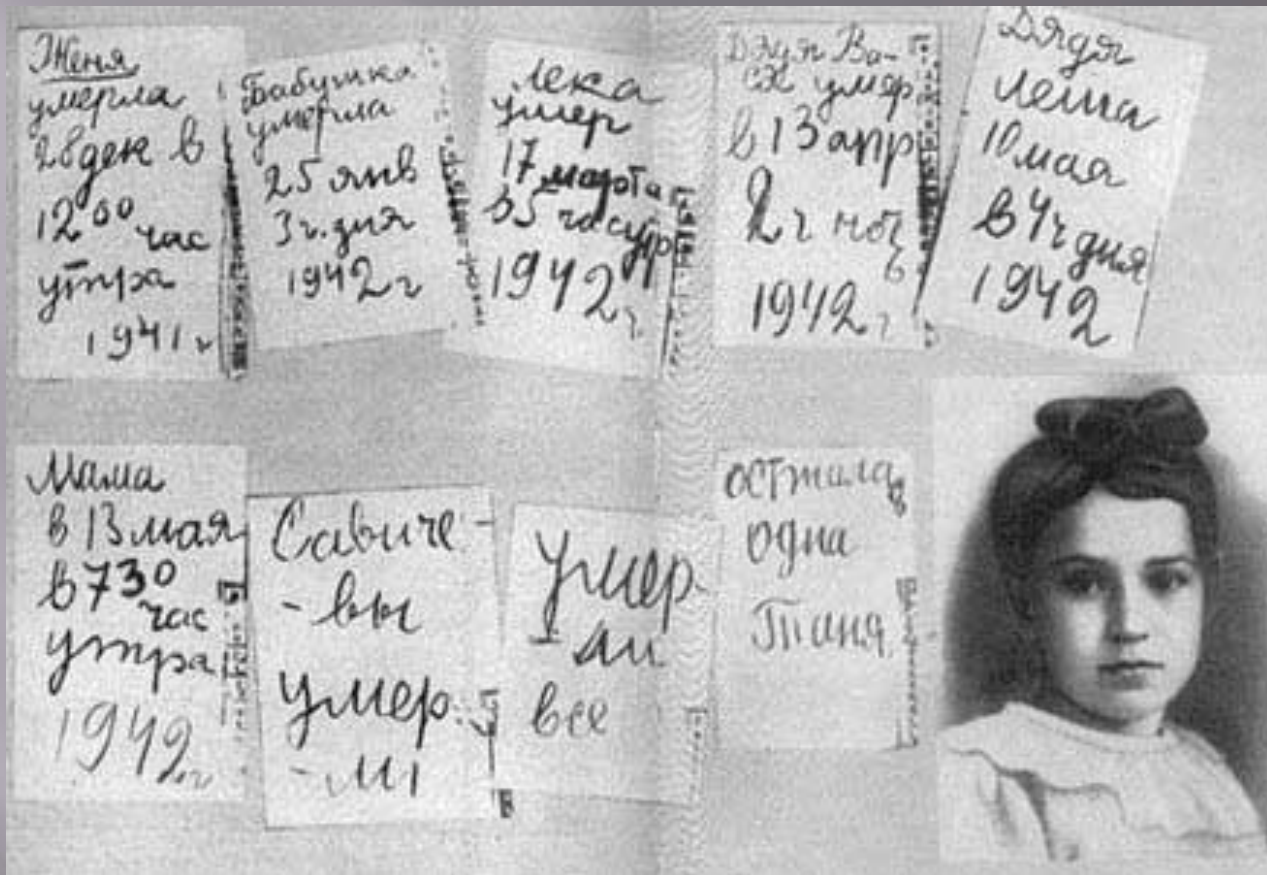 Женя
умерла
28 дек в
12 00 час
утра
1941 г
Бабушка
умерла
25 янв
3 ч. дня
1942 г
Лека
умер
17 марта
в 5 час утр
1942 г
Дядя Ва-
ся умер
в 13 апр
2 ч ноч
ь
1942 г
Дядя
Леша
10 мая
в 4 ч дня
1942
Мама
в 13 мая
в 7 30
час
утра
1942 г
Савиче-
-вы
умер
-ли
умер-
-ли
все
осталась
одна
Таня